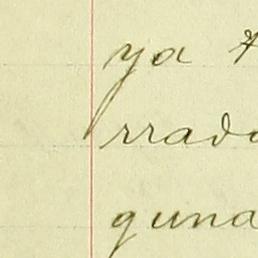 ya
rrado
guna